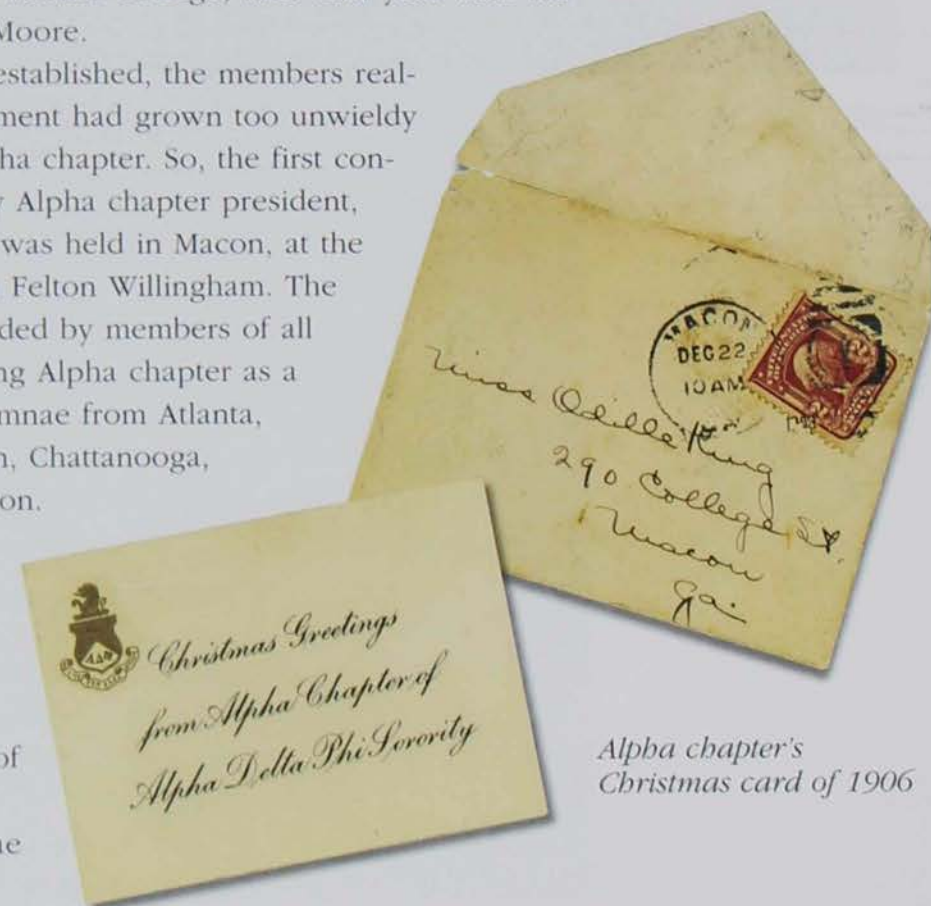 Moore.
established, the members real-
ment had grown too unwieldy
ha chapter. So, the first con-
Alpha chapter president,
was held in Macon, at the
Felton Willingham. The
ded by members of all
ng Alpha chapter as a
mnae from Atlanta,
n, Chattanooga,
on.
of
MACON
DEC 22
10 AM
Miss Odille King
290 College St.
Macon
Ga.
ΑΔΦ
Christmas Greetings
from Alpha Chapter of
Alpha Delta Phi Sorority
Alpha chapter's
Christmas card of 1906